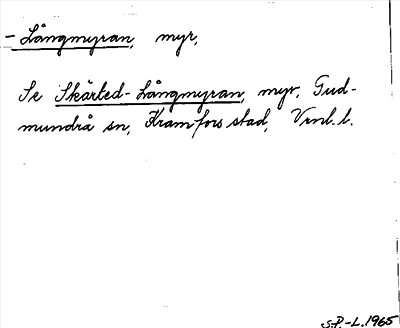 - Långmyran, myr,
Se Skärted-Långmyran, myr, Gud-
mundrå sn, Kramfors stad, Vrnl. l.
S.P.-L. 1965